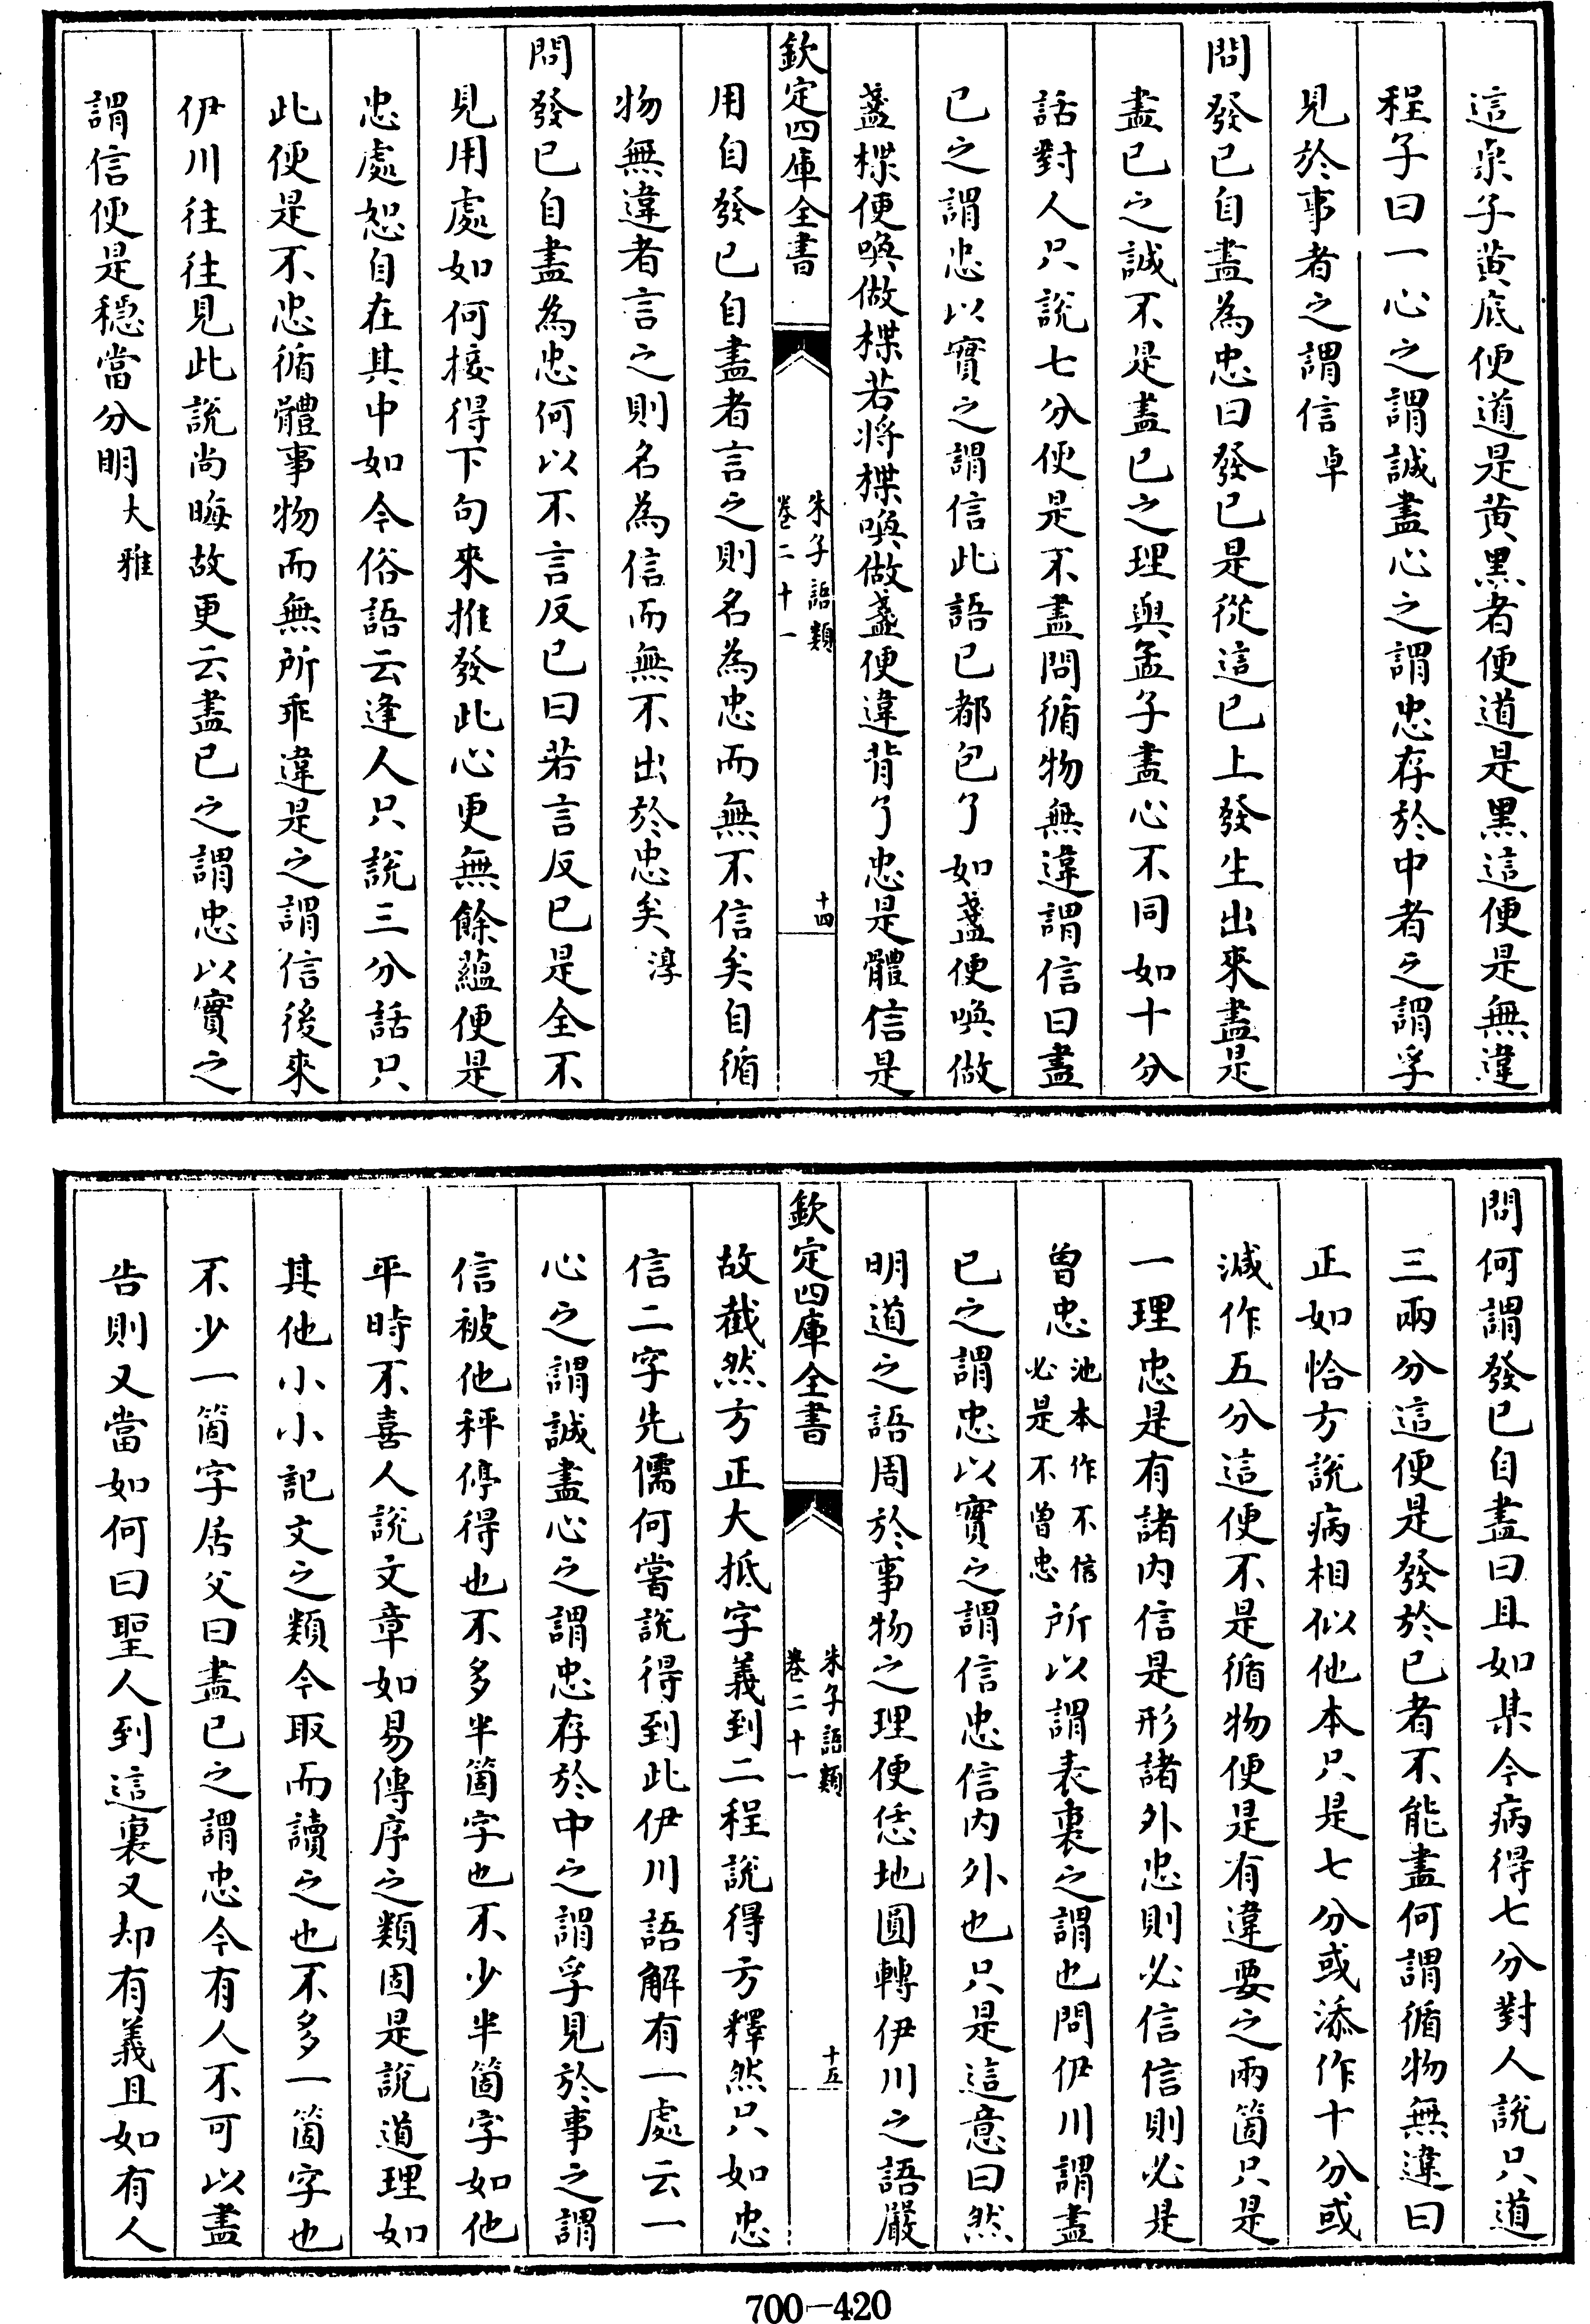 這桌子黄底便道是黄黑者便道是黑這便是無違
程子曰一心之謂誠盡心之謂忠存於中者之謂孚
見於事者之謂信卓
問發已自盡為忠曰發已是從這已上發生出來盡是
盡已之誠不是盡已之理與孟子盡心不同如十分
話對人只說七分便是不盡問循物無違謂信曰盡
已之謂忠以實之謂信此語已都包了如盞便喚做
盞楪便喚做楪若將楪喚做盞便違背了忠是體信是
欽定四庫全書
朱子語類
卷二十一
十四
用自發已自盡者言之則名為忠而無不信矣自循
物無違者言之則名為信而無不出於忠矣淳
問發已自盡為忠何以不言反已曰若言反已是全不
見用處如何接得下句來推發此心更無餘藴便是
忠處恕自在其中如今俗語云逢人只說三分話只
此便是不忠循體事物而無所乖違是之謂信後來
伊川往往見此說尚晦故更云盡已之謂忠以實之
謂信便是穩當分明大雅
問何謂發已自盡曰且如某今病得七分對人說只道
三兩分這便是發於已者不能盡何謂循物無違曰
正如恰方說病相似他本只是七分或添作十分或
減作五分這便不是循物便是有違要之兩箇只是
一理忠是有諸内信是形諸外忠則必信信則必是
曽忠池本作不信必是不曽忠所以謂表裏之謂也問伊川謂盡
已之謂忠以實之謂信忠信内外也只是這意曰然
明道之語周於事物之理便恁地圓轉伊川之語嚴
欽定四庫全書
朱子語類
卷二十一
十五
故截然方正大抵字義到二程說得方釋然只如忠
信二字先儒何嘗說得到此伊川語解有一處云一
心之謂誠盡心之謂忠存於中之謂孚見於事之謂
信被他秤停得也不多半箇字也不少半箇字如他
平時不喜人說文章如易傳序之類固是說道理如
其他小小記文之類今取而讀之也不多一箇字也
不少一箇字居父曰盡已之謂忠今有人不可以盡
告則又當如何曰聖人到這裏又却有義且如有人
700-420